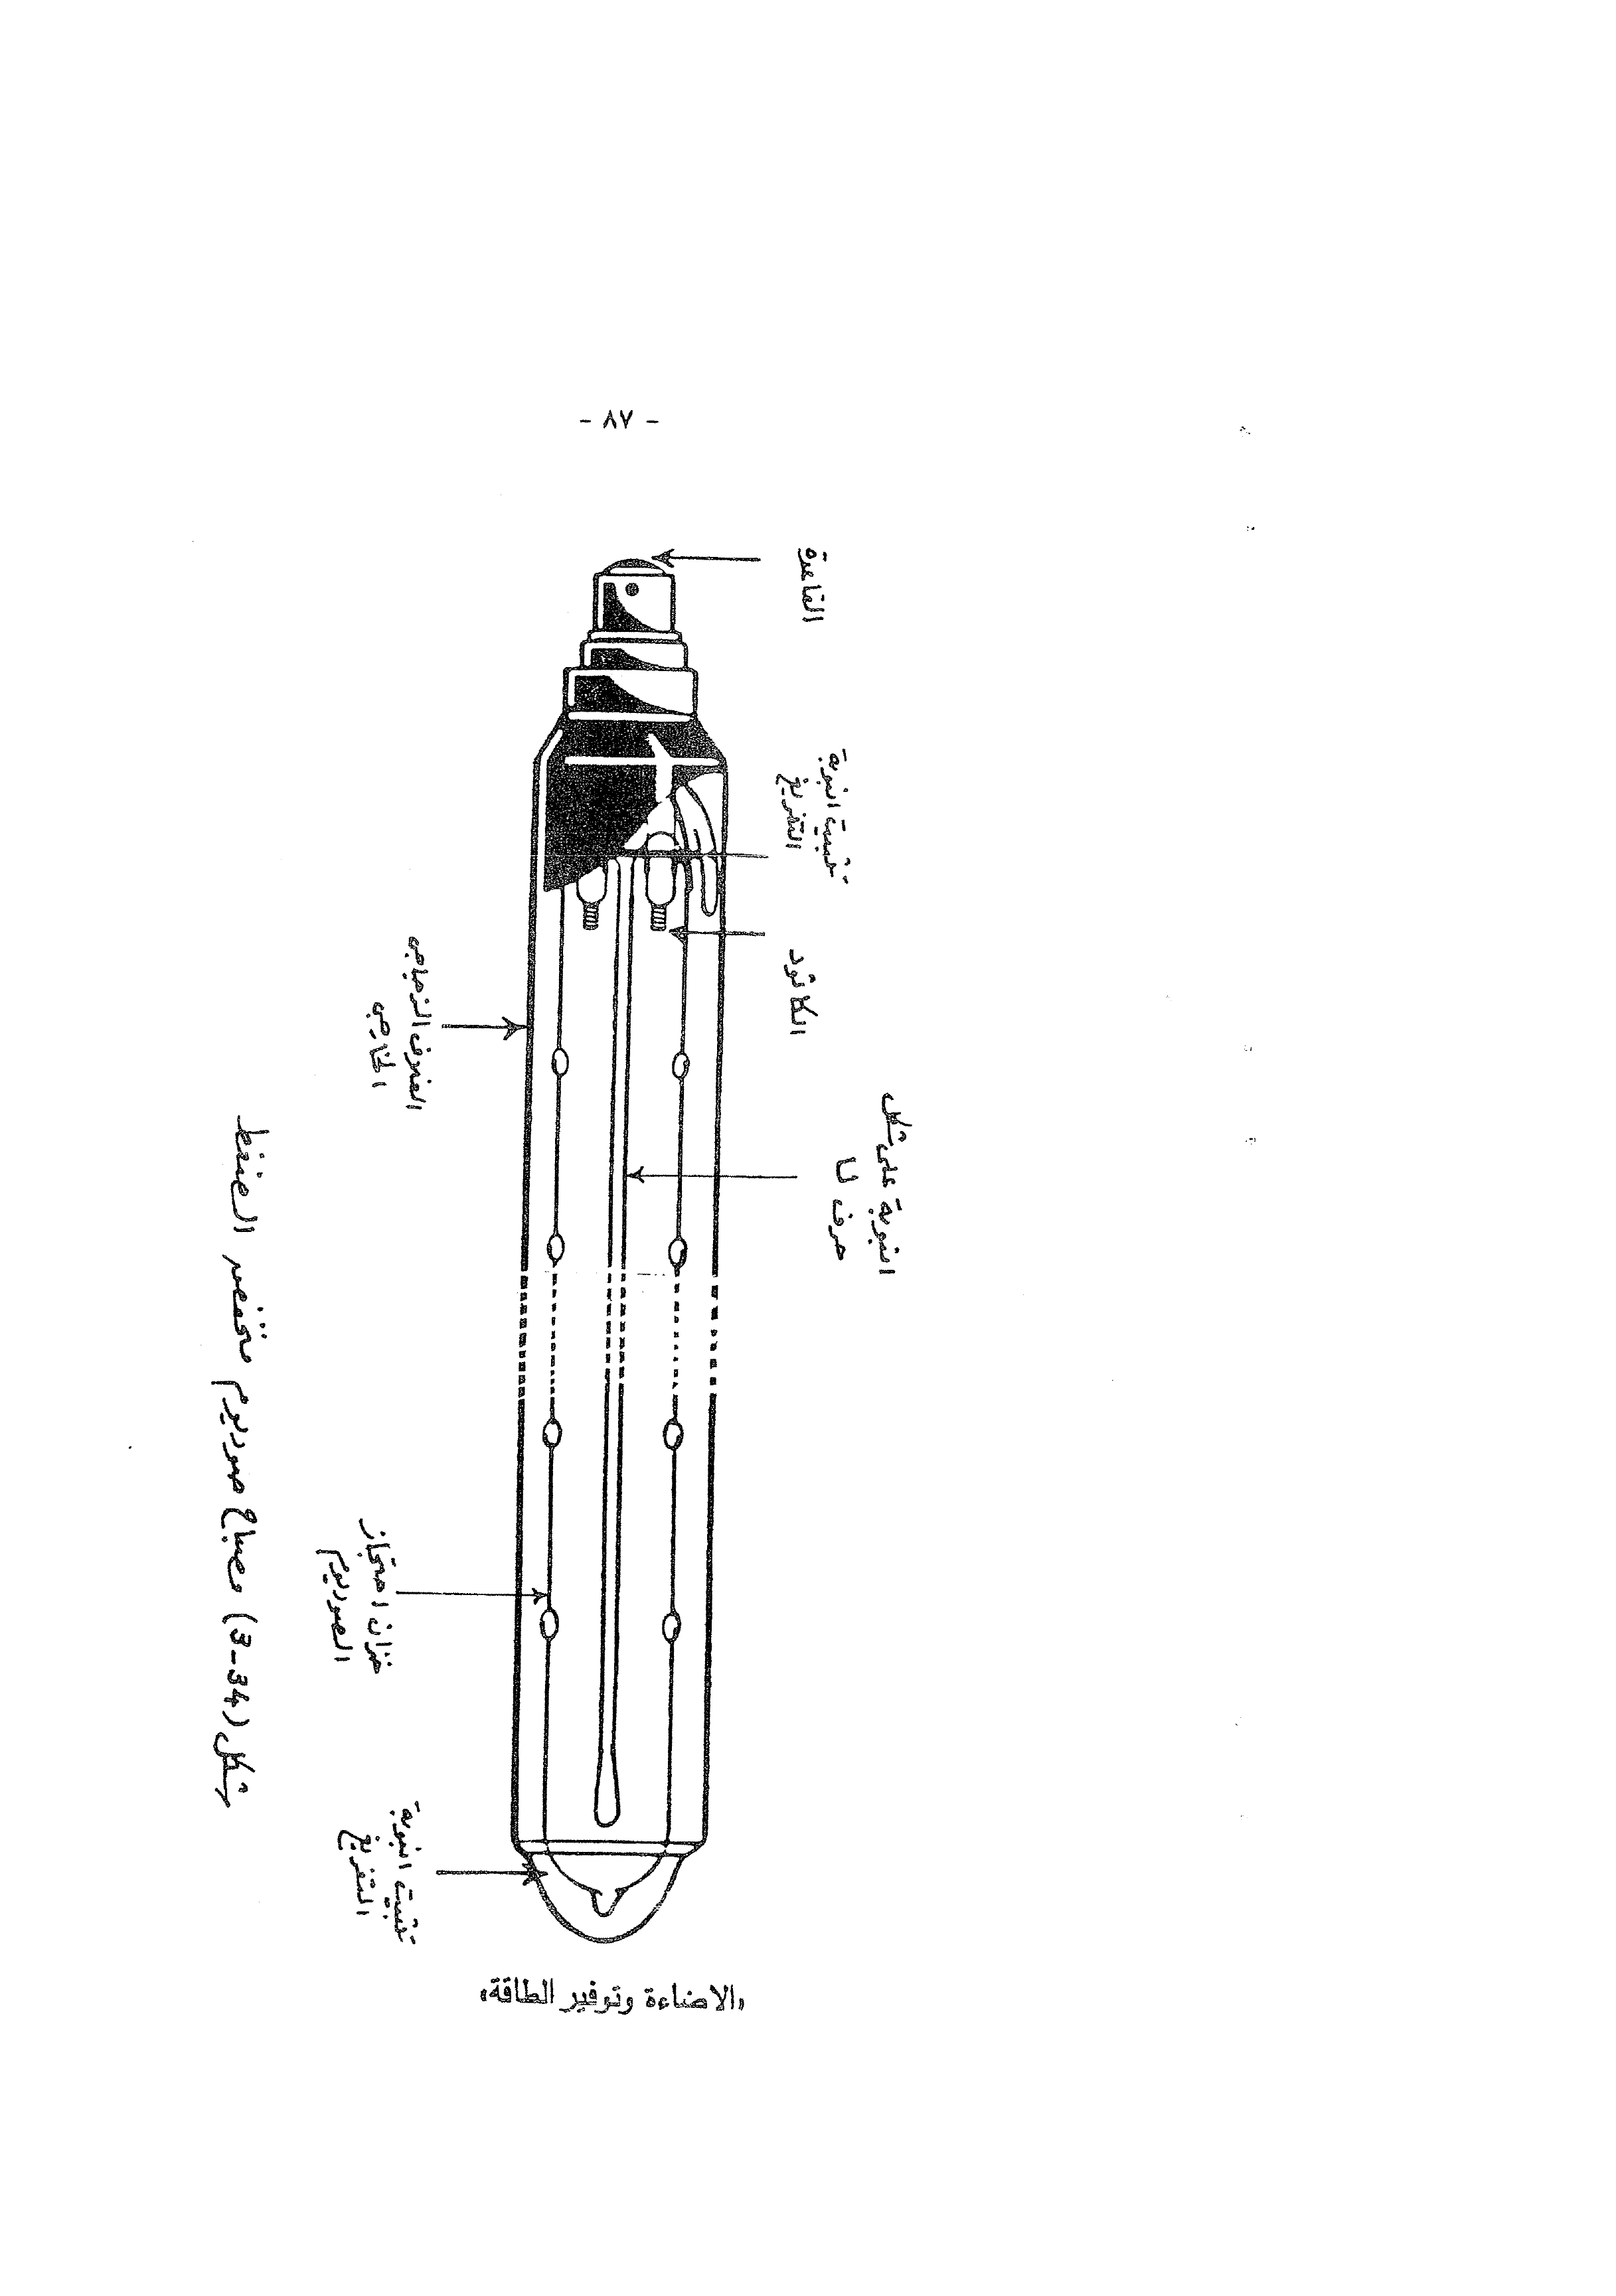 - ٨٧ -
القاعدة
تثبيت انبوبة
التفريغ
الكاثود
انبوبة على شكل
حرف U
الغلاف الزجاجي
الخارجي
خزان احتجاز
الصوديوم
تثبيت انبوبة
التفريغ
شكل (34-3) مصباح صوديوم منخفض الضغط
«الاضاءة وتوفير الطاقة»